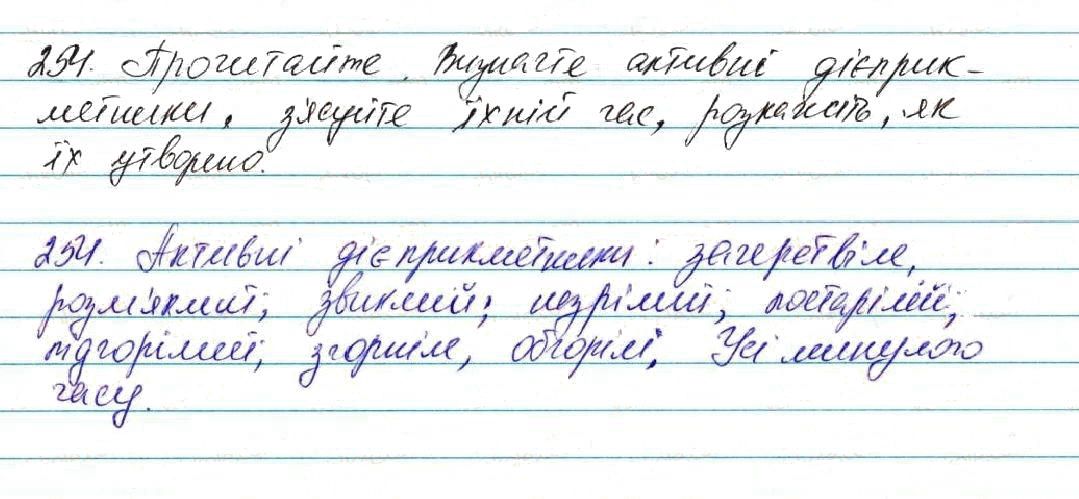 254. Прочитайте. Визначте активні дієприк-
метники, з'ясуйте їхній час, розкажіть, як
їх утворено.
254. Активні дієприкметники: зачерствіле,
розм'яклий; звиклий; незрілий; постарілий;
підгорілий; згоріле, обгорілі, Усі минулого
часу.